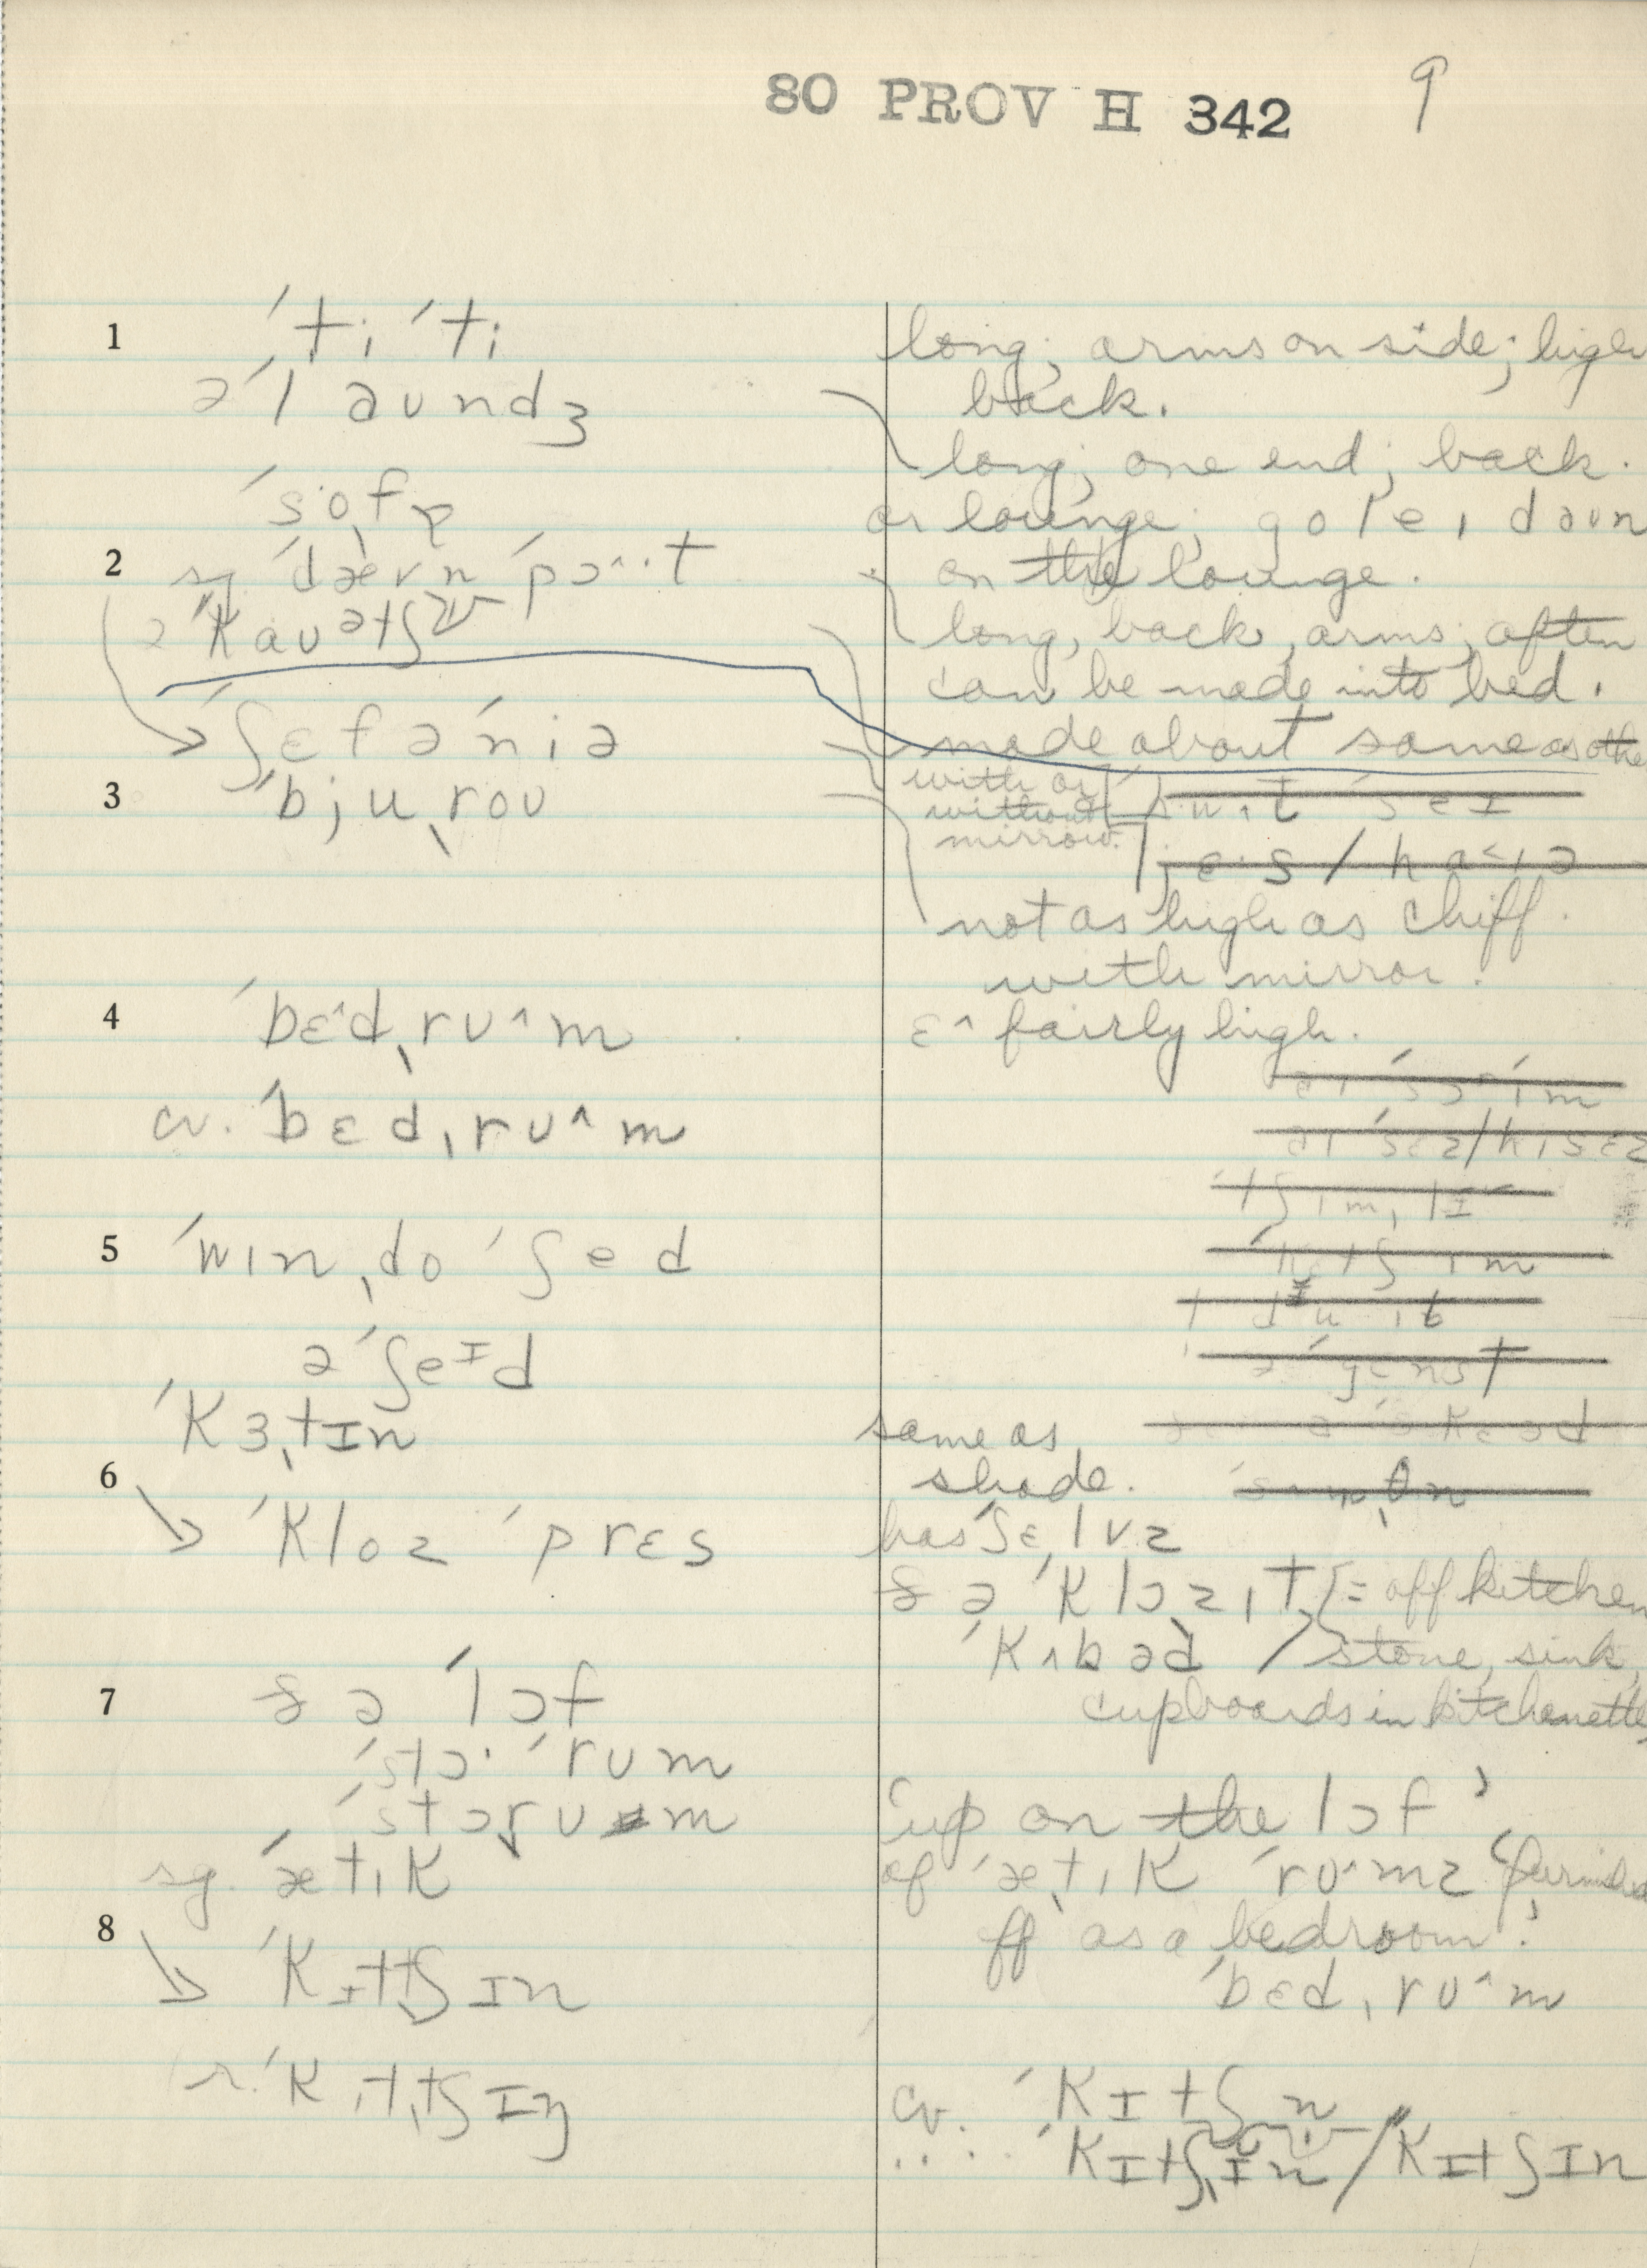 80 PROV H 342 9
1 ˈtiˈti
əˈlaundʒ
ˈsoˌfɐ
2 sg. ˈdævnˈpɔ^·t
əˈkauətʃ
ʃɛfəˈniə
3 ˈbjuˌrou
4 ˈbɛ^dˌru^m
cv. ˈbɛdˌru^m
5 ˈwɪnˌdoˈʃed
əˈʃeɪd
ˈkɜˌtɪn
6 ˈkloz ˈprɛs
7 ðə ˈlɔf
ˈstɔ· ˈrum
ˈstɔˌrum
sg. ˈætɪk
8 ˈkɪtˌtʃɪn
r. ˈkɪtˌtʃɪŋ
long; arms on side; high
back.
long; one end; back.
or lounge; go lei daun
on the lounge.
long, back, arms; often
can be made into bed.
made about same as othe
with or
without
mirror.
not as high as chiff.
with mirror.
ɛ^ fairly high.
same as
shade.
has ˈʃɛlvz
ðə ˈklɔzɪt = off kitchen
ˈkʌbəd / stone, sink,
cupboards in kitchenette,
'up on the lɔf'
of ˈætˌɪk ˈru^mz 'furnished
off as a bedroom.'
ˈbɛdˌru^m
cv. ˈkɪtʃn
.... ˈkɪtˌʃɪn / ˈkɪtʃɪn